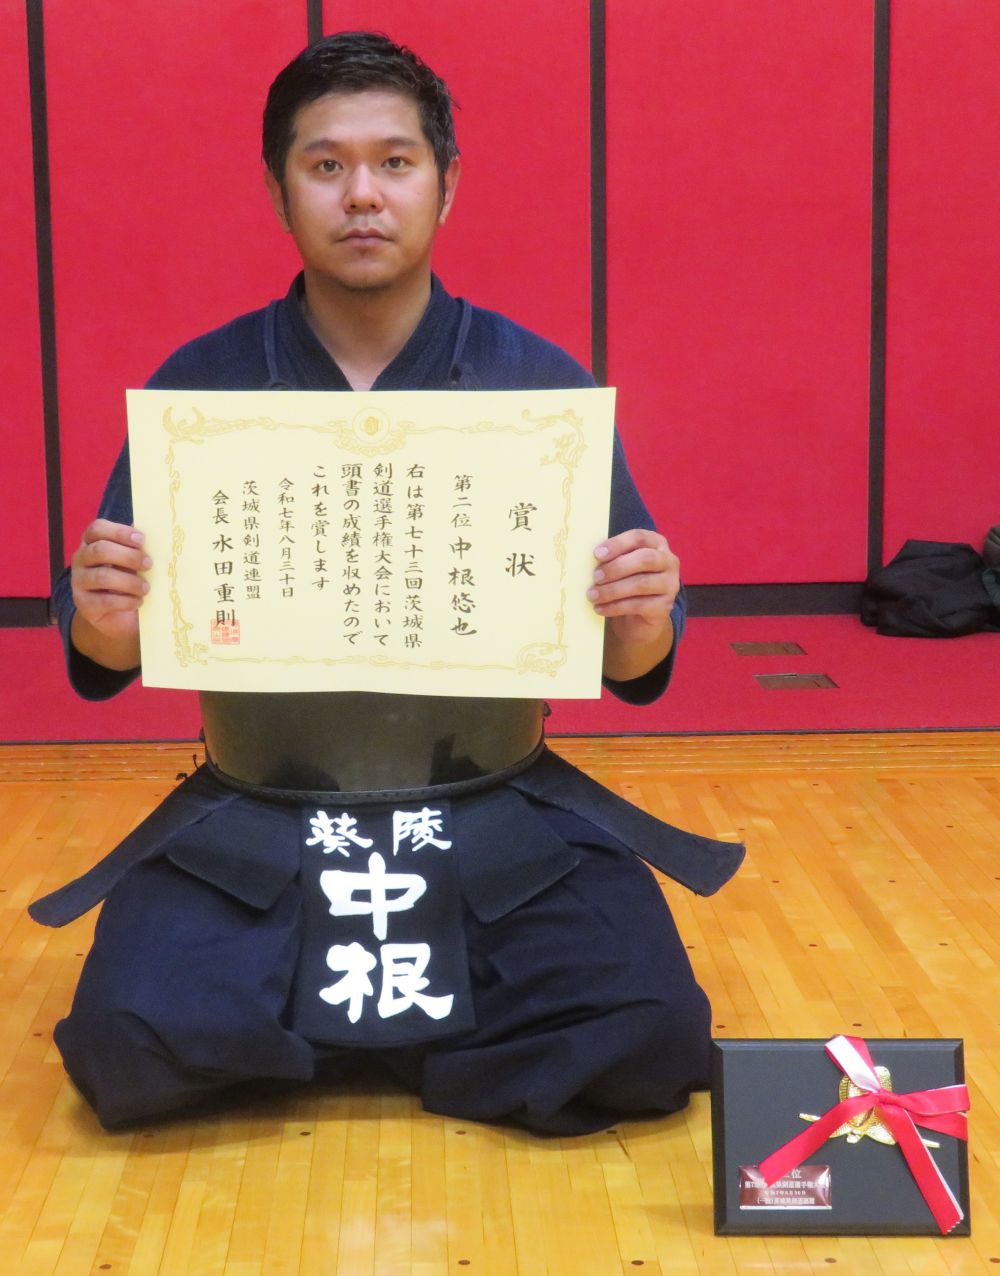 賞状
第二位 中根悠也
右は第七十三回茨城県
剣道選手権大会において
頭書の成績を収めたので
これを賞します
令和七年八月三十日
茨城県剣道連盟
会長 水田重則
葵陵
中根
位
剣道選手権大
(一財)茨城県剣道連盟